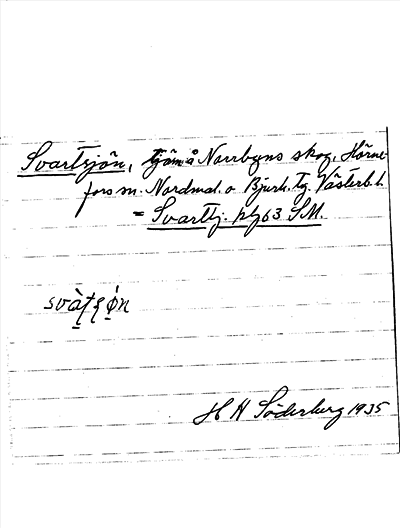 Svartsjön, tjärn å Norrbyns skog, Hörne-
fors sn. Nordmal. o Bjurh. tg. Västerb. l.
= Svarttj. pl. 63 SM.
svàʈʂø̣n
H H Söderberg 1935